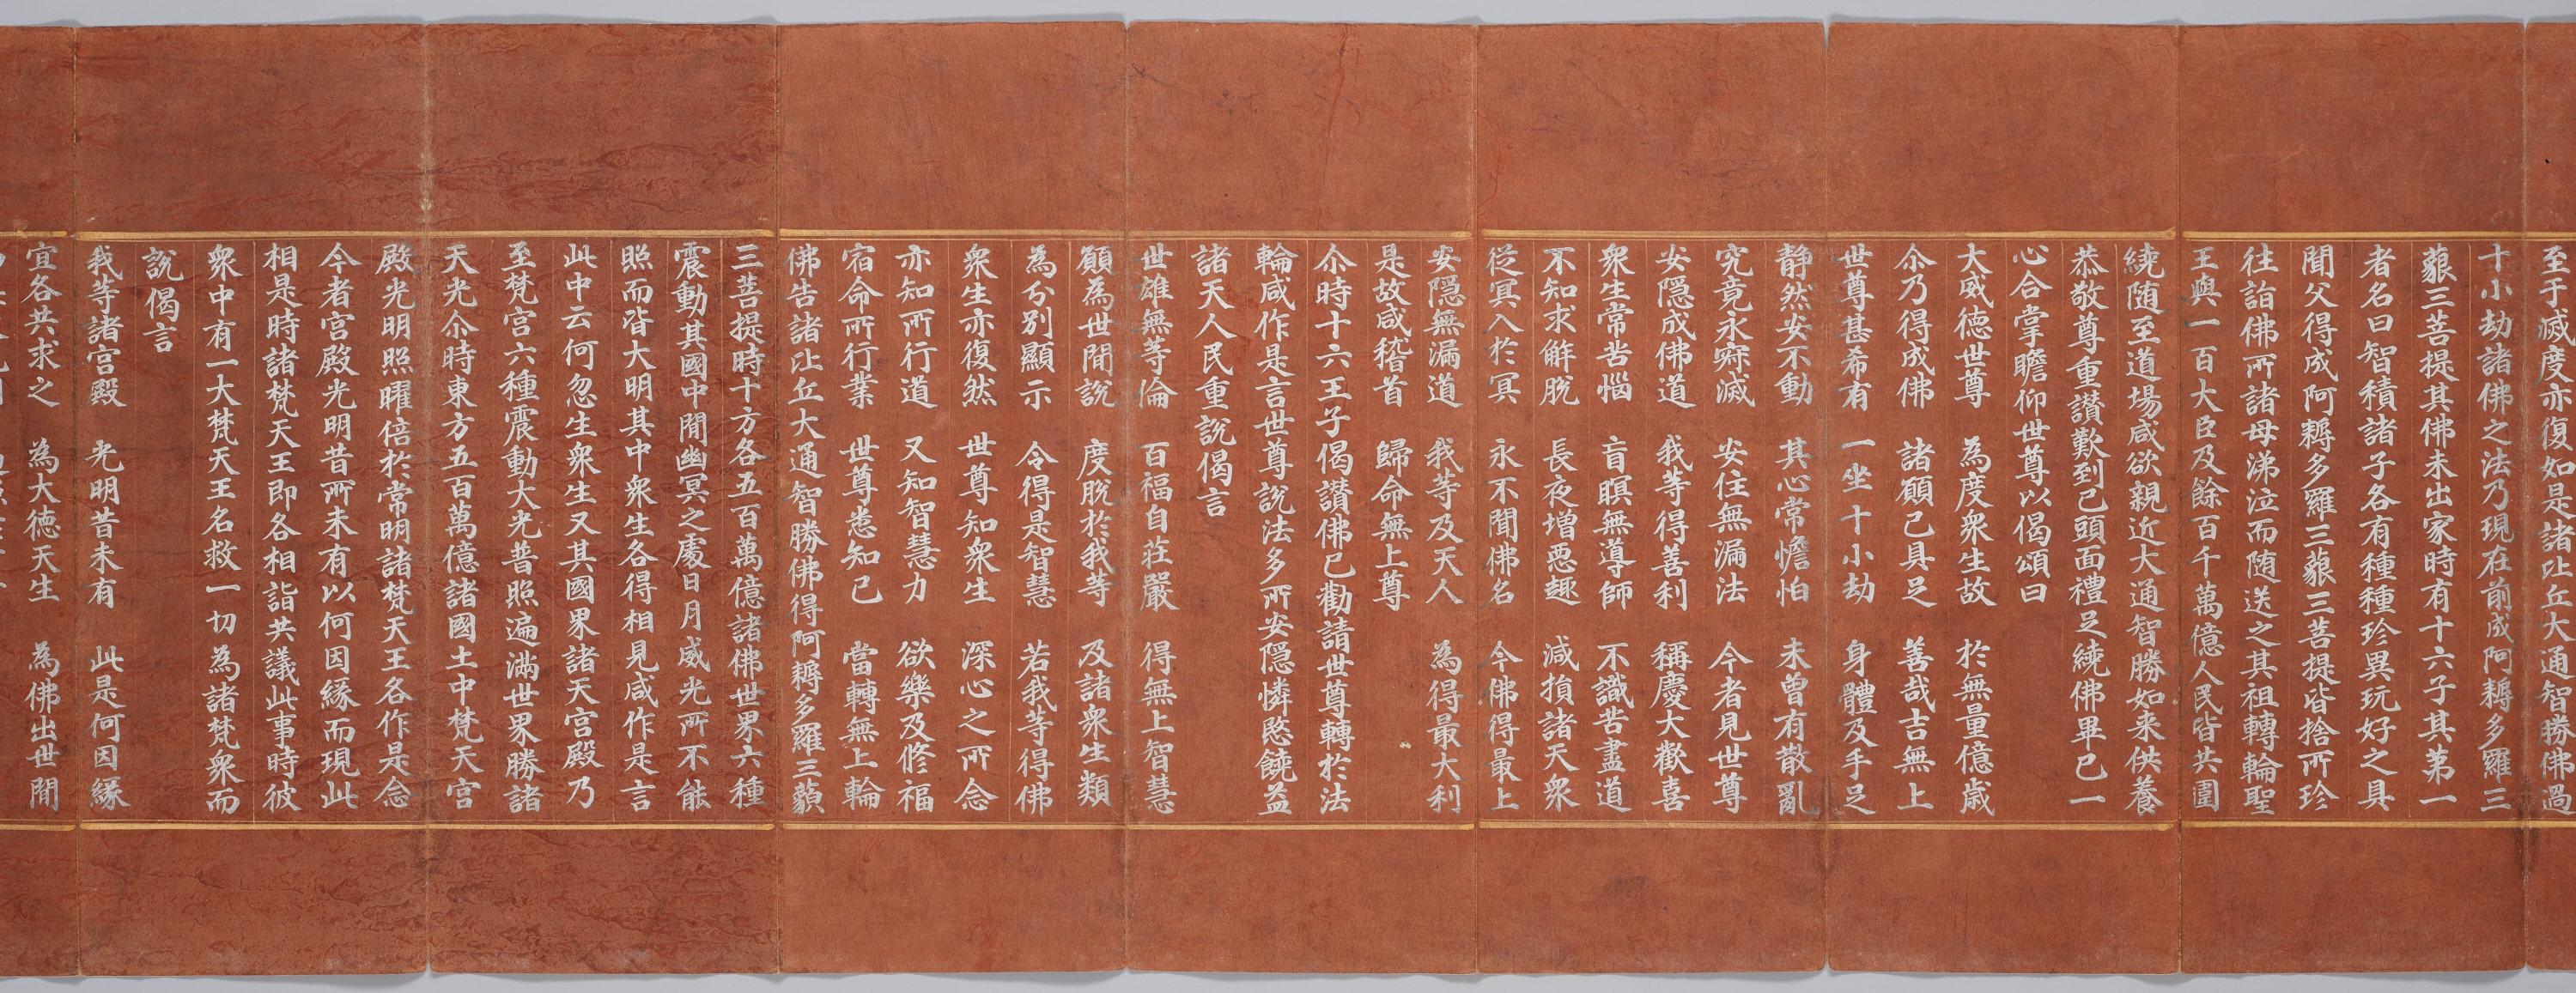 至于滅度亦復如是諸比丘大通智勝佛過
十小劫諸佛之法乃現在前成阿耨多羅三
藐三菩提其佛未出家時有十六子其第一
者名曰智積諸子各有種種珍異玩好之具
聞父得成阿耨多羅三藐三菩提皆捨所珍
往詣佛所諸母涕泣而随送之其祖轉輪聖
王與一百大臣及餘百千萬億人民皆共圍
繞随至道場咸欲親近大通智勝如来供養
恭敬尊重讃歎到已頭面禮足繞佛畢已一
心合掌瞻仰世尊以偈頌曰
大威徳世尊　為度衆生故　於無量億歳
尒乃得成佛　諸願已具足　善哉吉無上
世尊甚希有　一坐十小劫　身體及手足
静然安不動　其心常憺怕　未曽有散亂
究竟永寂滅　安住無漏法　今者見世尊
安隠成佛道　我等得善利　稱慶大歡喜
衆生常苦惱　盲瞑無導師　不識苦盡道
不知求解脱　長夜増惡趣　減損諸天衆
従冥入於冥　永不聞佛名　今佛得最上
安隠無漏道　我等及天人　為得最大利
是故咸稽首　歸命無上尊
尒時十六王子偈讃佛已勸請世尊轉於法
輪咸作是言世尊説法多所安隠憐愍饒益
諸天人民重説偈言
世雄無等倫　百福自荘嚴　得無上智慧
願為世間説　度脱於我等　及諸衆生類
為分別顯示　令得是智慧　若我等得佛
衆生亦復然　世尊知衆生　深心之所念
亦知所行道　又知智慧力　欲樂及修福
宿命所行業　世尊悉知已　當轉無上輪
佛告諸比丘大通智勝佛得阿耨多羅三藐
三菩提時十方各五百萬億諸佛世界六種
震動其國中間幽冥之處日月威光所不能
照而皆大明其中衆生各得相見咸作是言
此中云何忽生衆生又其國界諸天宮殿乃
至梵宮六種震動大光普照遍滿世界勝諸
天光尒時東方五百萬億諸國土中梵天宮
殿光明照曜倍於常明諸梵天王各作是念
今者宮殿光明昔所未有以何因縁而現此
相是時諸梵天王即各相詣共議此事時彼
衆中有一大梵天王名救一切為諸梵衆而
説偈言
我等諸宮殿　光明昔未有　此是何因縁
宜各共求之　為大徳天生　為佛出世間